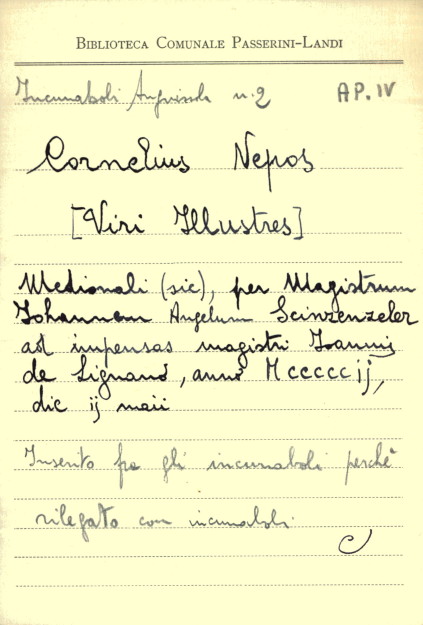 BIBLIOTECA COMUNALE PASSERINI-LANDI
Incunaboli Anguissola n. 2 AP. IV
Cornelius Nepos
[Viri Illustres]
Medionali (sic), per Magistrum
Johannem Angelum Scinzenzeler
ad impensas magistri Joannis
de Lignano, anno Mcccccij,
die ij maii
Inserito fra gli incunaboli perchè
rilegato con incunaboli